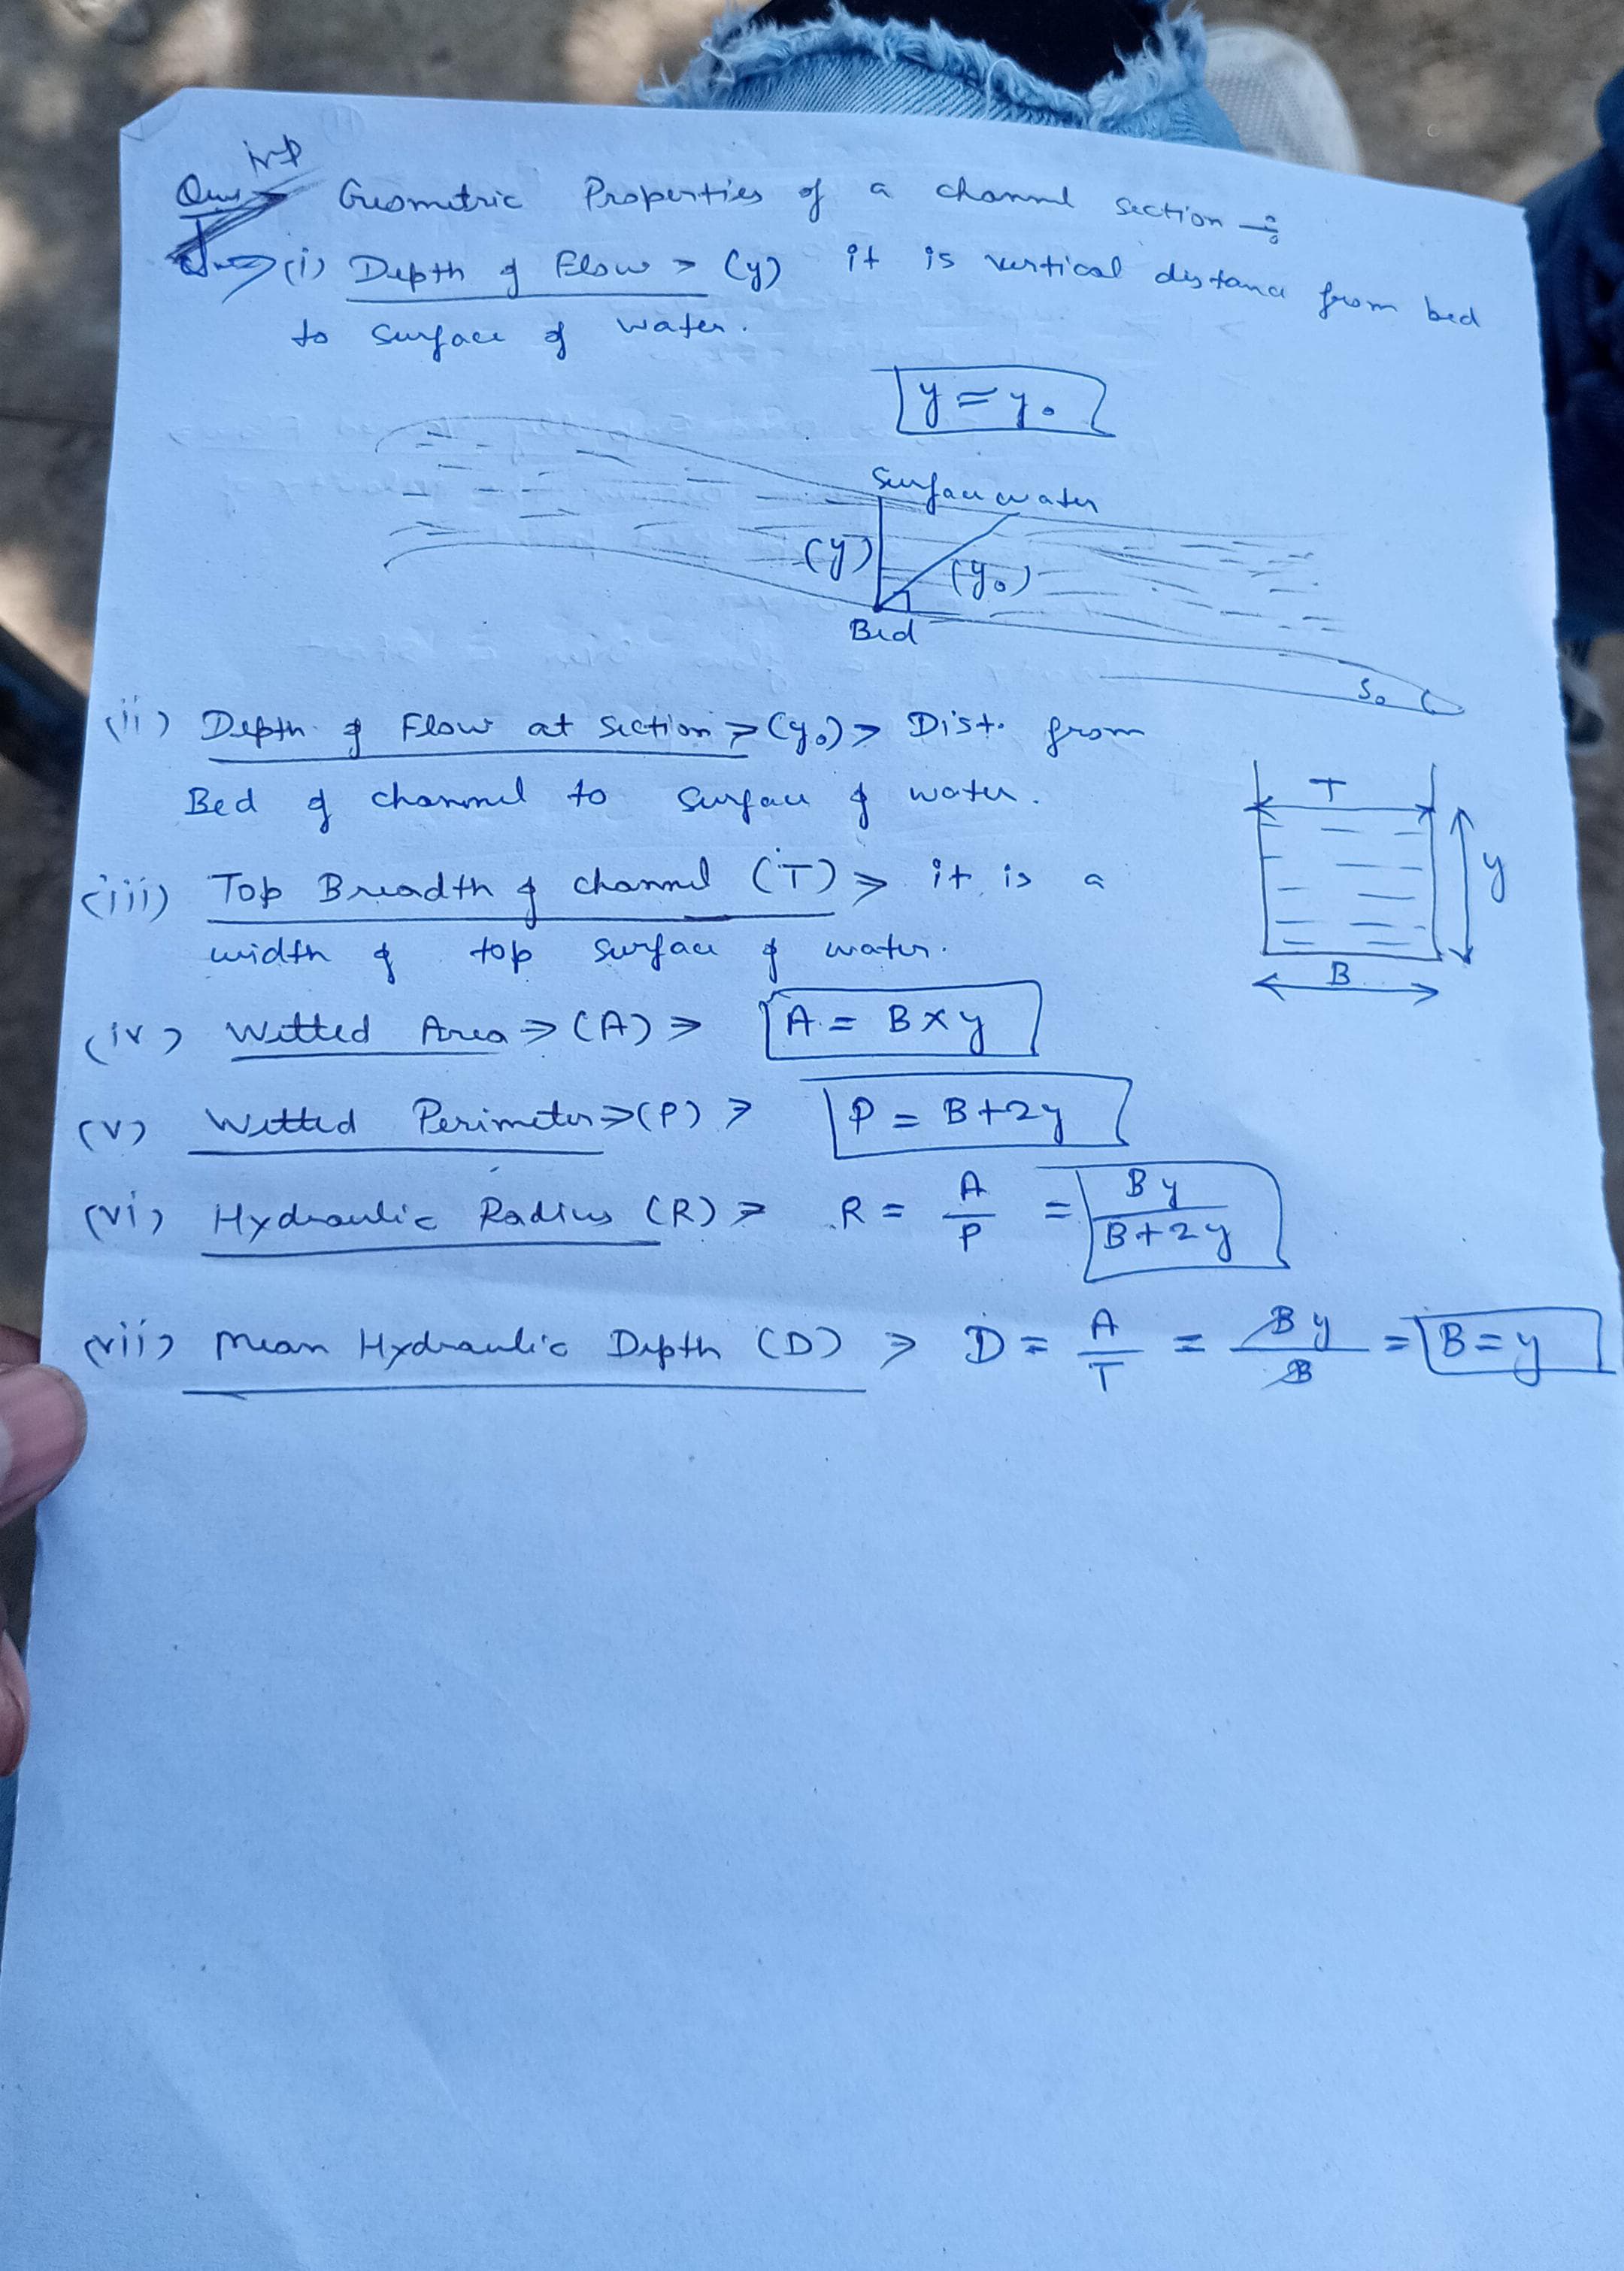 imp
Ques → Geometric Properties of a channel section :-
Ans → (i) Depth of Flow > (y) it is vertical distance from bed
to surface of water.
y = y₀
Surface water
(y)
(y₀)
Bed
S₀
(ii) Depth of Flow at Section > (y₀) > Dist. from
Bed of channel to surface of water.
(iii) Top Breadth of channel (T) > it is a
width of top surface of water.
T
y
B
(iv) Wetted Area > (A) > A = B × y
(v) Wetted Perimeter > (P) > P = B + 2y
(vi) Hydraulic Radius (R) > R = A/P = By/B+2y
(vii) Mean Hydraulic Depth (D) > D = A/T = By/B = B = y